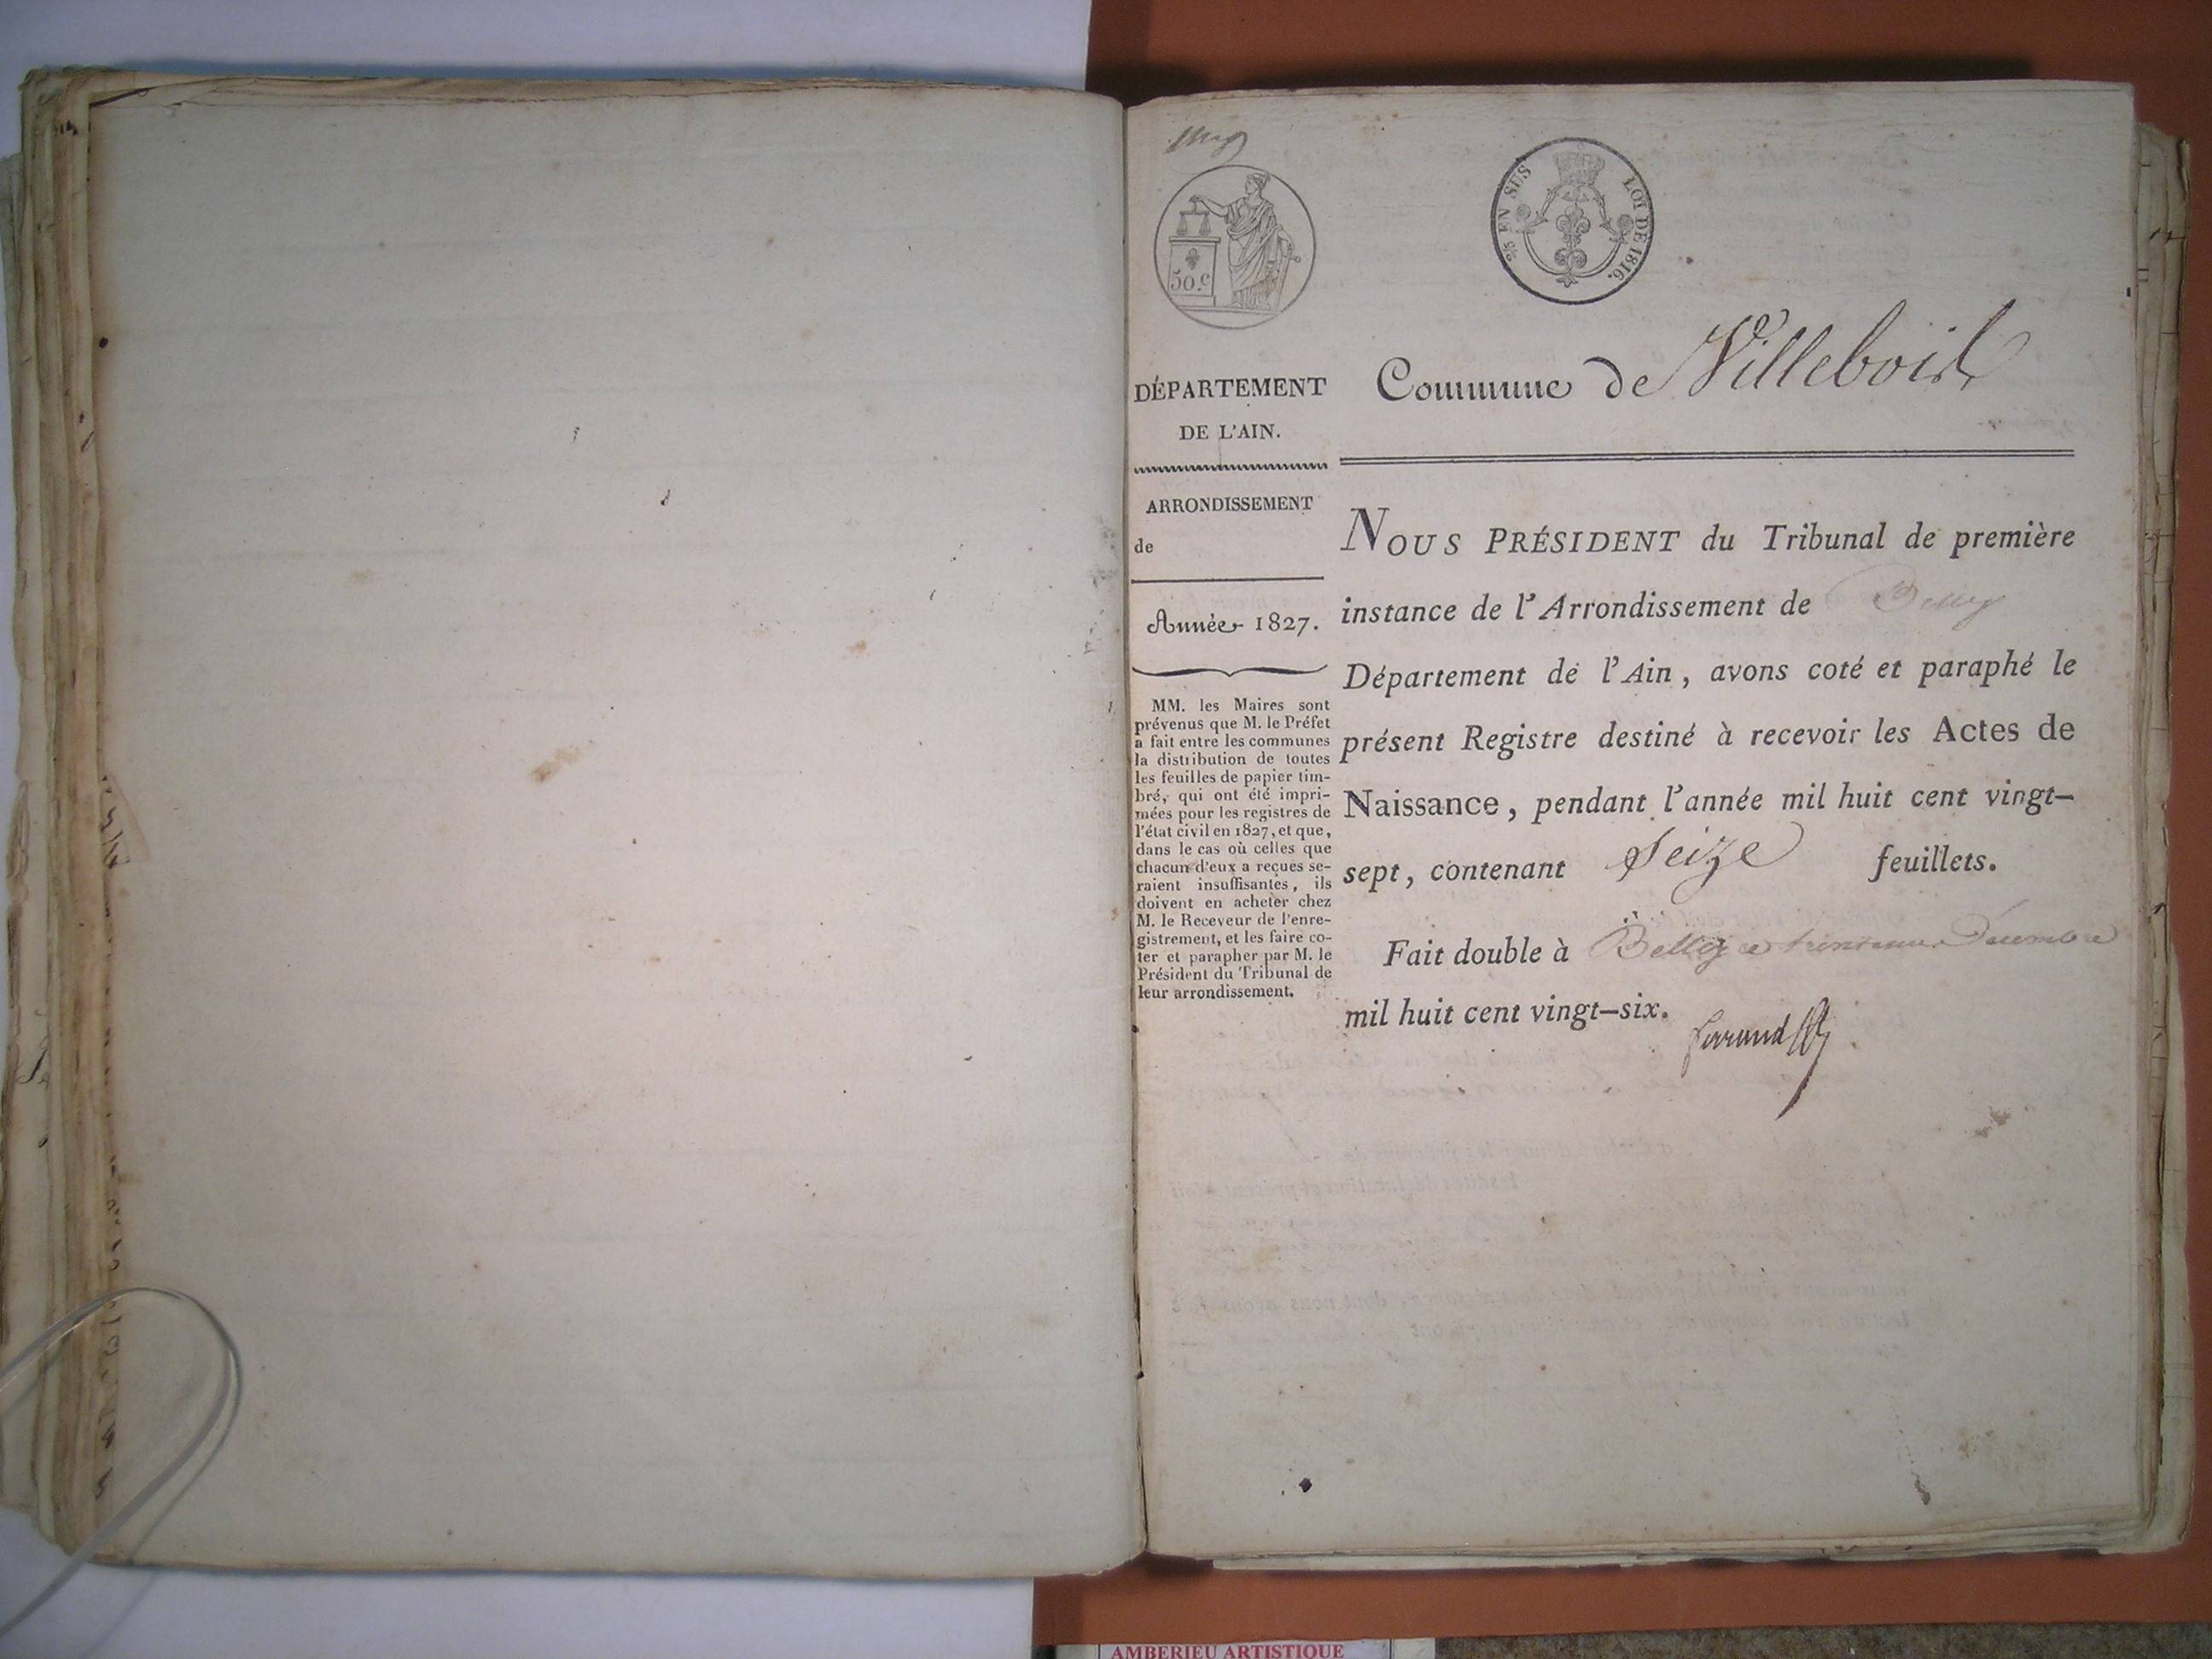 50.c
EN SUS
LOI DE 1816.
DÉPARTEMENT
DE L'AIN.
ARRONDISSEMENT
de
Année 1827.
MM. les Maires sont
prévenus que M. le Préfet
a fait entre les communes
la distribution de toutes
les feuilles de papier tim-
bré, qui ont été impri-
mées pour les registres de
l'état civil en 1827, et que,
dans le cas où celles que
chacun d'eux a reçues se-
raient insuffisantes, ils
doivent en acheter chez
M. le Receveur de l'enre-
gistrement, et les faire co-
ter et parapher par M. le
Président du Tribunal de
leur arrondissement.
Commune de Villebois
NOUS PRÉSIDENT du Tribunal de première
instance de l'Arrondissement de Belley
Département de l'Ain, avons coté et paraphé le
présent Registre destiné à recevoir les Actes de
Naissance, pendant l'année mil huit cent vingt-
sept, contenant Seize feuillets.
Fait double à Belley Décembre
mil huit cent vingt-six.
AMBERIEU ARTISTIQUE